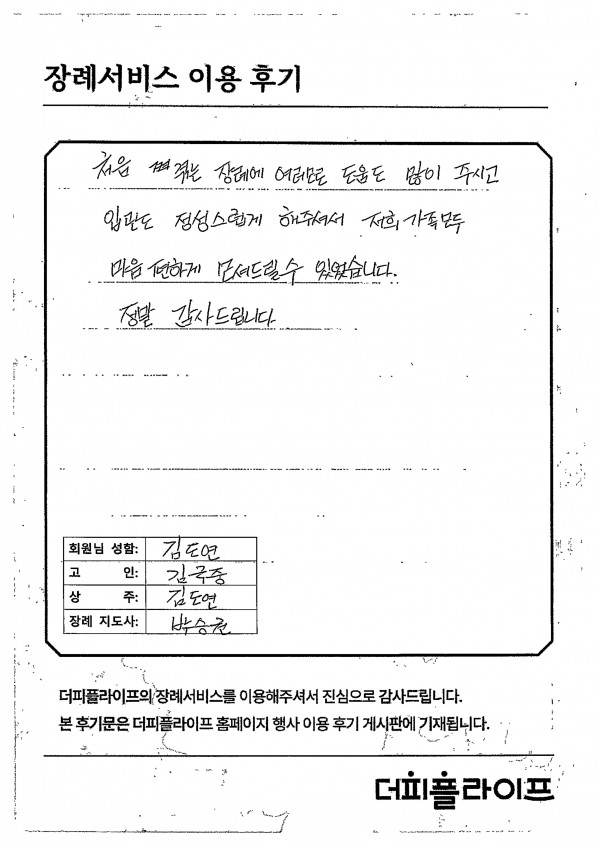 장례서비스 이용 후기
처음 겪는 장례에 여러모로 도움도 많이 주시고
입관도 정성스럽게 해주셔서 저희 가족 모두
마음 편하게 모셔드릴 수 있었습니다.
정말 감사드립니다
회원님 성함: 김도연
고 인: 김국중
상 주: 김도연
장례 지도사: 박승권
더피플라이프의 장례서비스를 이용해주셔서 진심으로 감사드립니다.
본 후기문은 더피플라이프 홈페이지 행사 이용 후기 게시판에 기재됩니다.
더피플라이프